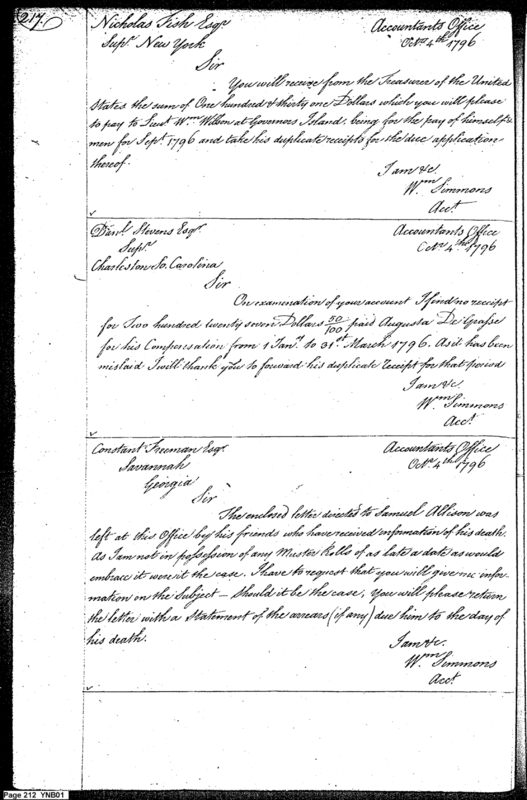 217
Nicholas Fish Esqr. Accountants Office
Supr. New York Octr. 4th 1796
Sir
You will receive from the Treasurer of the United
States the sum of One hundred & thirty one Dollars which you will please
to pay to Lieut. Wm. Wilson at Governors Island. being for the pay of himself &
men for Sept. 1796 and take his duplicate receipts for the due application
thereof.
I am &c.
Wm. Simmons
Acct.
Danl. Stevens Esqr. Accountants Office
Supr. Octr. 4th 1796
Charleston So. Carolina
Sir
On examination of your account I find no receipt
for Two hundred twenty seven Dollars 50/100 paid Augusta De Grasse
for his Compensation from 1 Jany. to 31st March 1796. As it has been
mislaid I will thank you to forward his duplicate receipt for that period
I am &c.
Wm. Simmons
Acct.
Constant Freeman Esqr. Accountants Office
Savannah Octr. 4th 1796
Georgia
Sir
The enclosed letter directed to Samuel Allison was
left at this Office by his friends who have received information of his death.
As I am not in possession of any Muster Rolls of as late a date as would
embrace it were it the case. I have to request that you will give me infor-
mation on the Subject - Should it be the case, You will please return
the letter with a Statement of the arrears (if any) due him to the day of
his death.
I am &c.
Wm. Simmons
Acct.
Page 212 YNB01